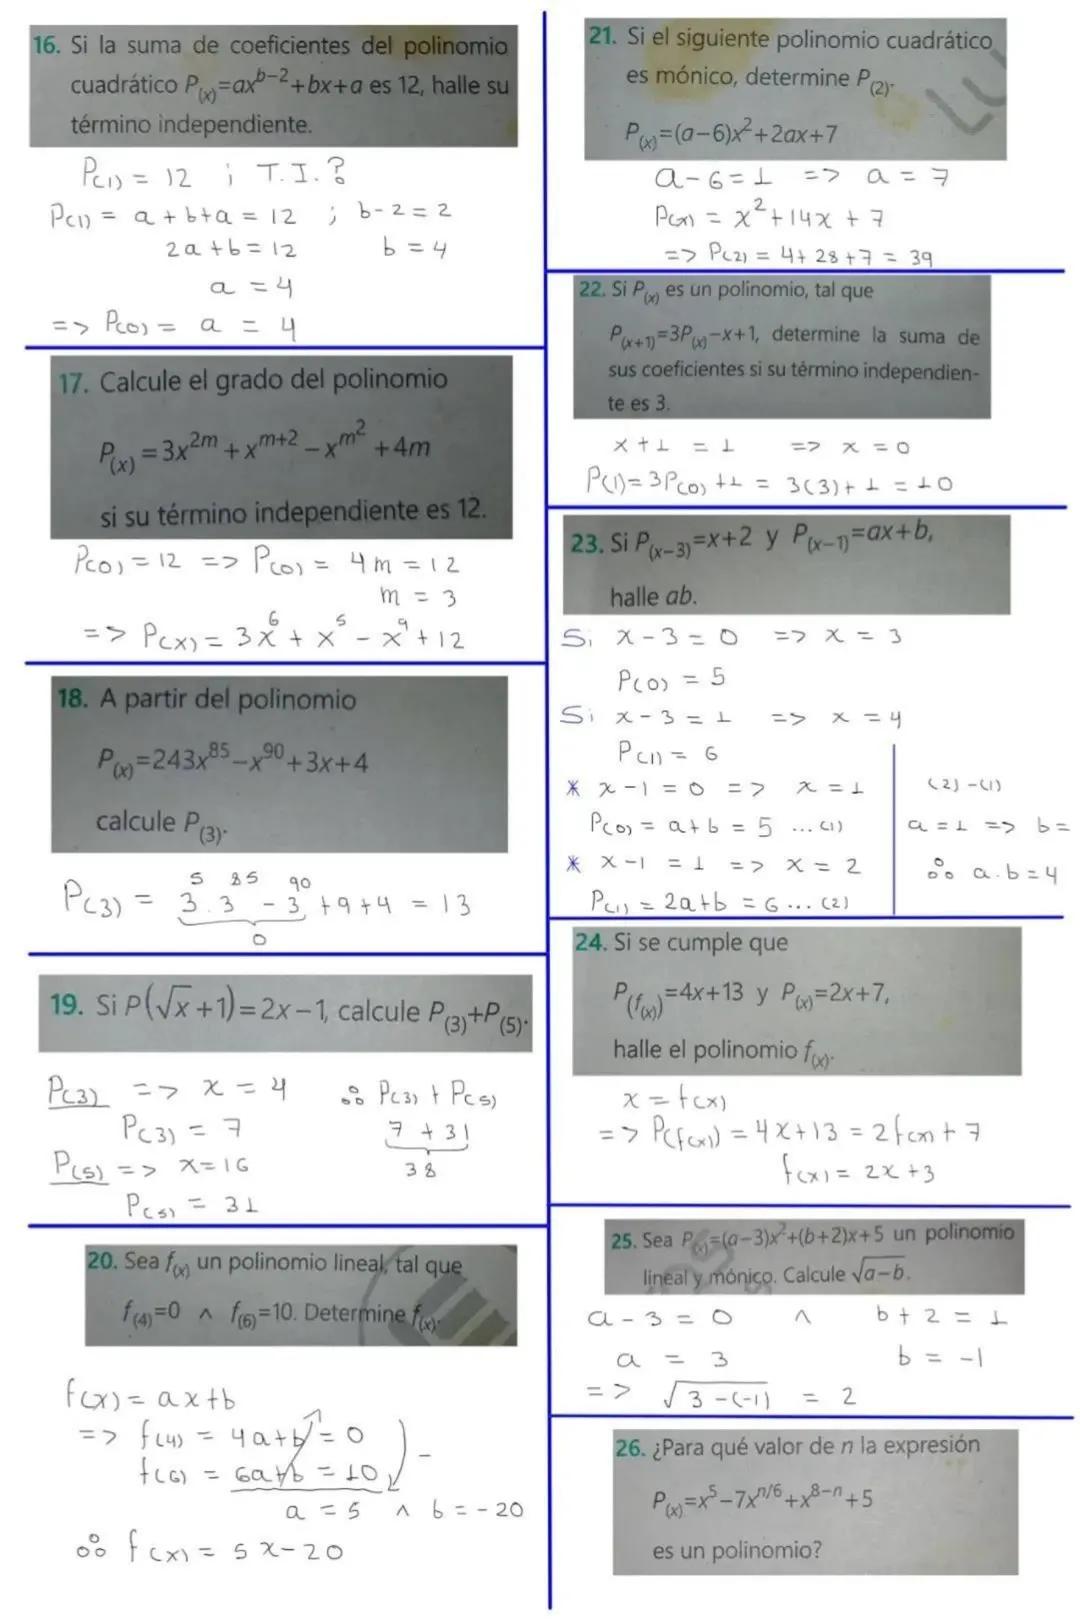 16. Si la suma de coeficientes del polinomio
cuadrático P(x)=ax^(b−2)+bx+a es 12, halle su
término independiente.
P(1) = 12 ; T.I.?
P(1) = a + b + a = 12 ; b − 2 = 2
2a + b = 12 b = 4
a = 4
=> P(0) = a = 4
17. Calcule el grado del polinomio
P(x) = 3x^(2m) + x^(m+2) − x^(m²) + 4m
si su término independiente es 12.
P(0) = 12 => P(0) = 4m = 12
m = 3
=> P(x) = 3x⁶ + x⁵ − x⁹ + 12
18. A partir del polinomio
P(x)=243x⁸⁵−x⁹⁰+3x+4
calcule P(3).
P(3) = 3⁵.3⁸⁵ − 3⁹⁰ + 9 + 4 = 13
0
19. Si P(√x+1)=2x−1, calcule P(3)+P(5).
P(3) => x = 4 ∴ P(3) + P(5)
P(3) = 7 7 + 31
P(5) => x=16 38
P(5) = 31
20. Sea f(x) un polinomio lineal, tal que
f(4)=0 ∧ f(6)=10. Determine f(x).
f(x) = ax+b
=> f(4) = 4a+b = 0
f(6) = 6a+b = 10 −
a = 5 ∧ b = −20
∴ f(x) = 5x−20
21. Si el siguiente polinomio cuadrático
es mónico, determine P(2).
P(x)=(a−6)x²+2ax+7
LU
a−6=1 => a = 7
P(x) = x²+14x+7
=> P(2) = 4+28+7 = 39
22. Si P(x) es un polinomio, tal que
P(x+1)=3P(x)−x+1, determine la suma de
sus coeficientes si su término independien-
te es 3.
x+1 = 1 => x = 0
P(1)=3P(0)+1 = 3(3)+1 = 10
23. Si P(x−3)=x+2 y P(x−1)=ax+b,
halle ab.
Si x−3 = 0 => x = 3
P(0) = 5
Si x−3 = 1 => x = 4
P(1) = 6
* x−1 = 0 => x = 1 (2)−(1)
P(0) = a+b = 5 ...(1) a=1 => b=
* x−1 = 1 => x = 2 ∴ a.b=4
P(1) = 2a+b = 6...(2)
24. Si se cumple que
P(f(x))=4x+13 y P(x)=2x+7,
halle el polinomio f(x).
x = f(x)
=> P(f(x)) = 4x+13 = 2f(x)+7
f(x) = 2x+3
25. Sea P(x)=(a−3)x²+(b+2)x+5 un polinomio
lineal y mónico. Calcule √a−b.
a−3 = 0 ∧ b+2 = 1
a = 3 b = −1
=> √3−(−1) = 2
26. ¿Para qué valor de n la expresión
P(x)=x⁵−7x^(n/6)+x^(8−n)+5
es un polinomio?